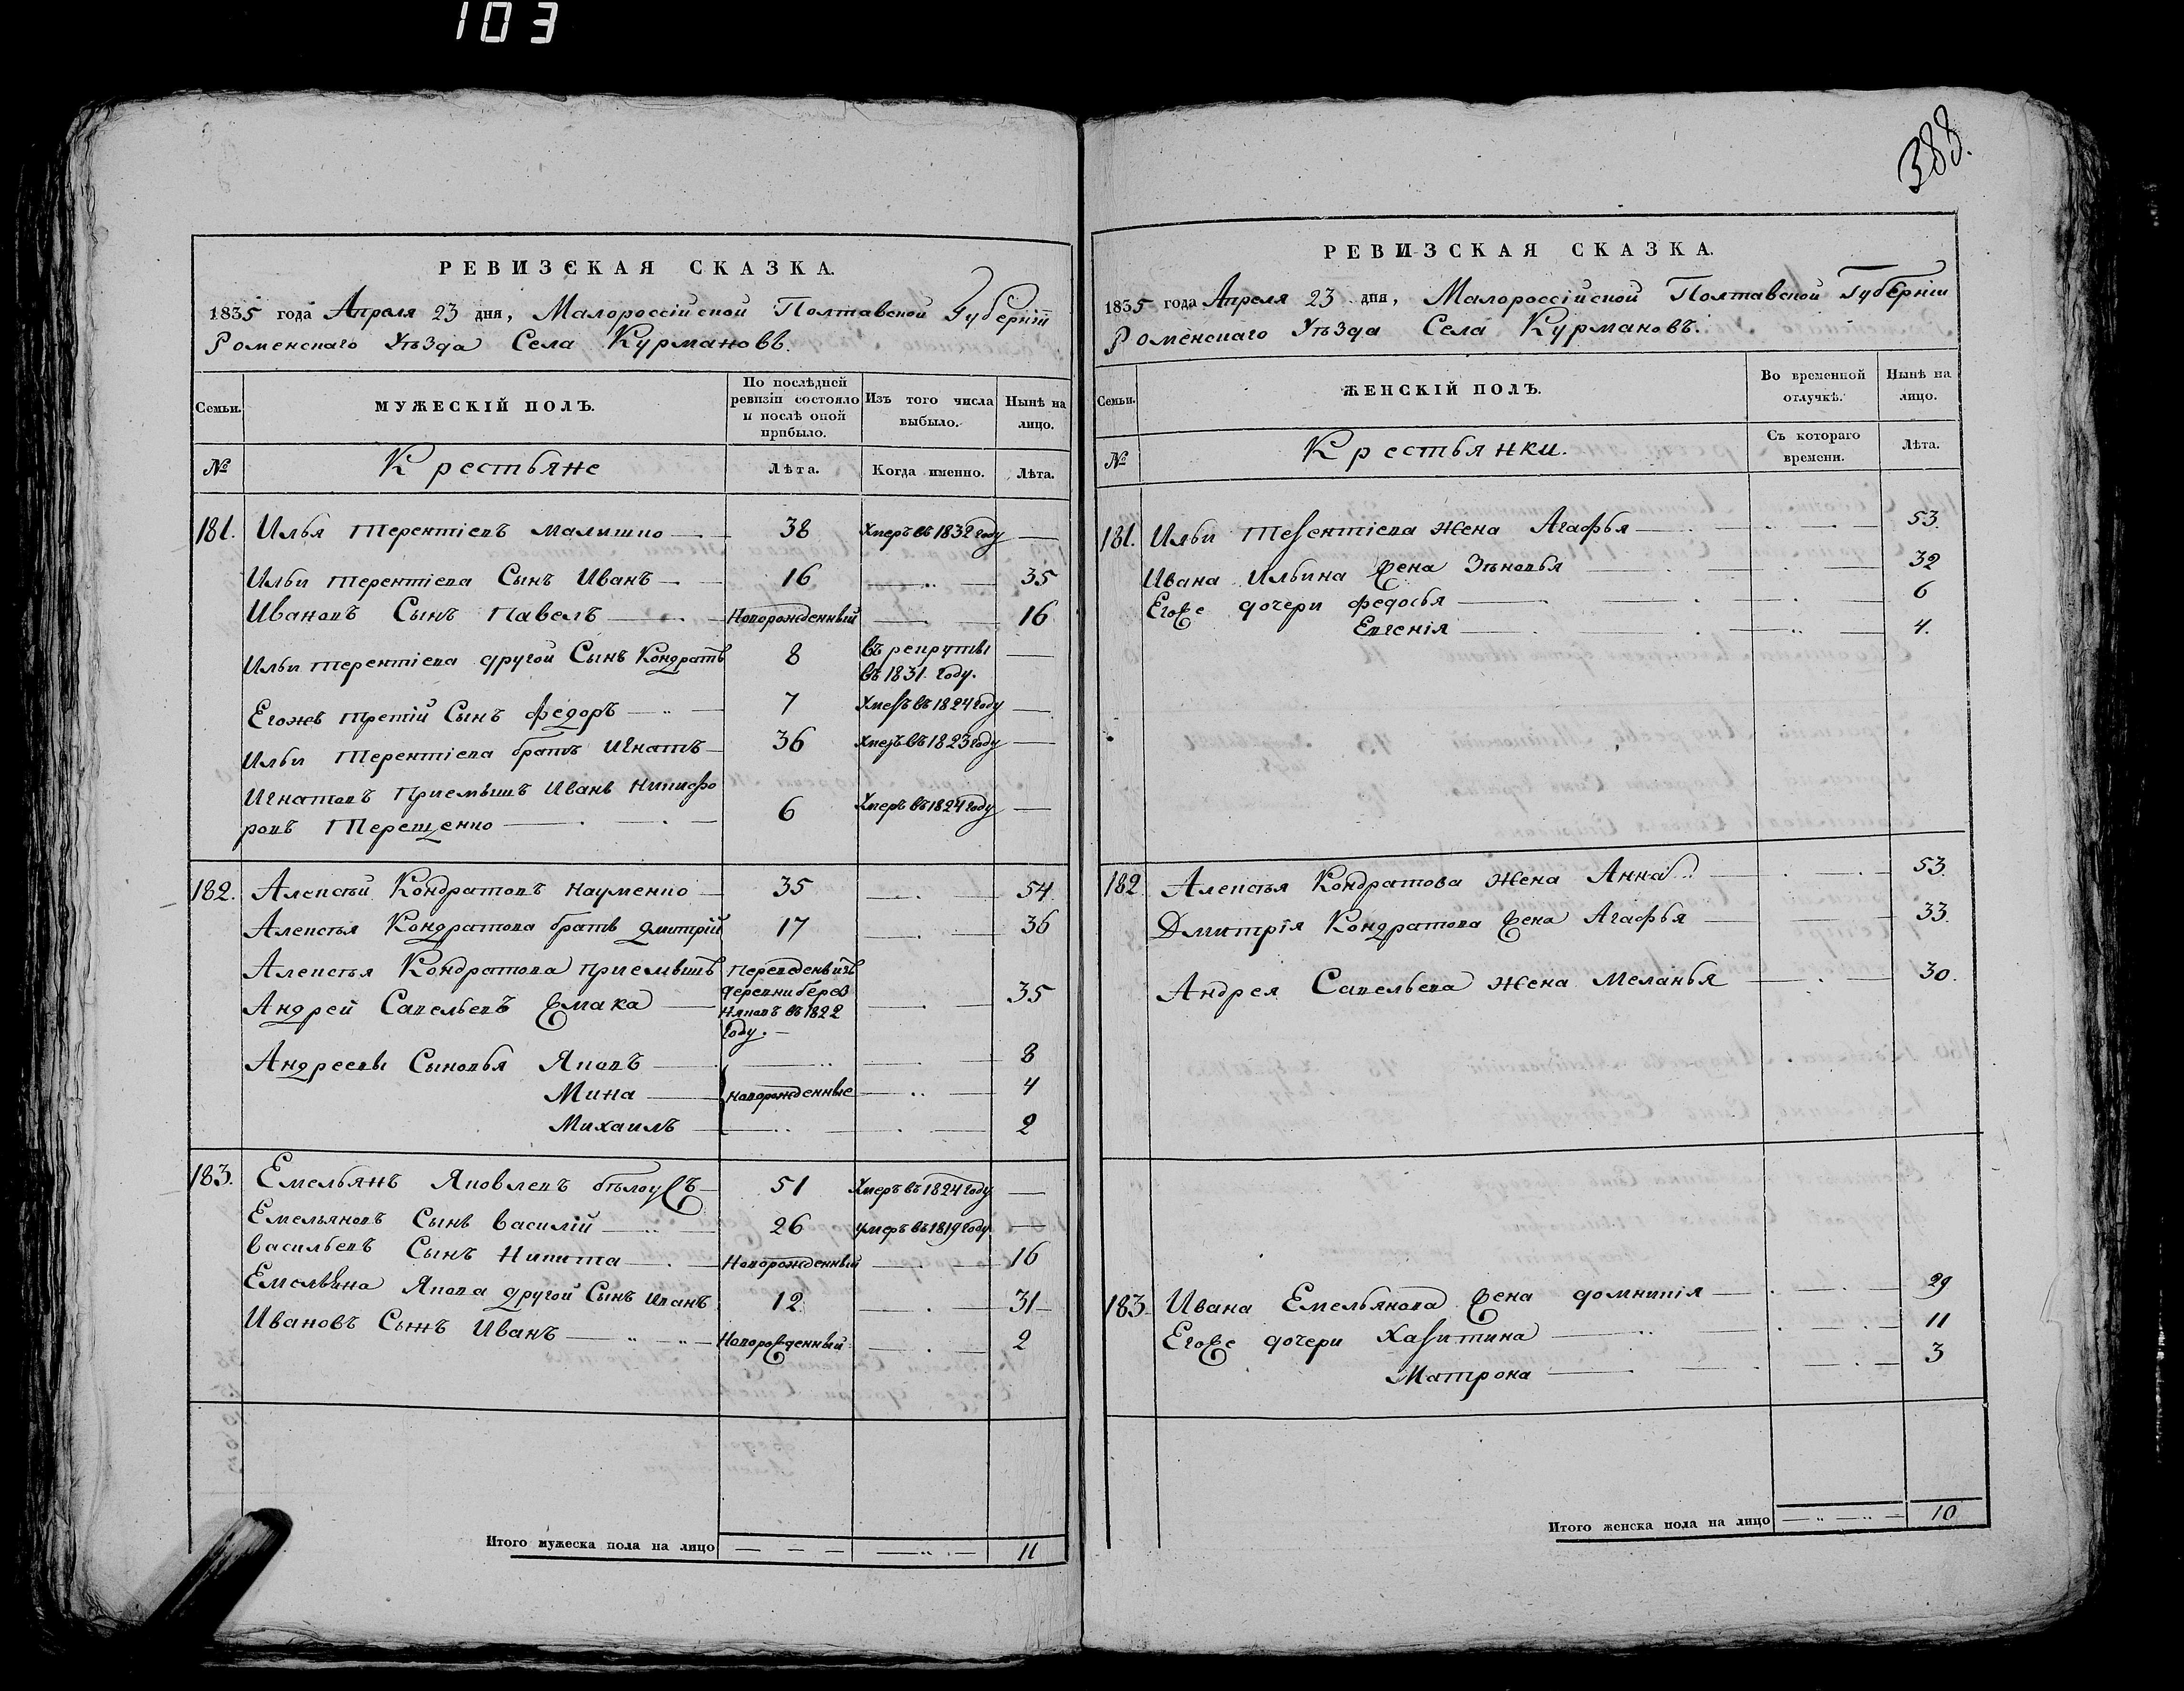 103
388.
РЕВИЗСКАЯ СКАЗКА.
1835 года Апреля 23 дня, Малороссійской Полтавской Губерніи
Роменскаго Уѣзда Села Курмановъ.
Семьи.
МУЖЕСКІЙ ПОЛЪ.
По послѣдней ревизіи состояло и послѣ оной прибыло.
Изъ того числа выбыло.
Нынѣ на лицо.
№
Крестьяне
Лѣта.
Когда именно.
Лѣта.
181. Илья Терентіевъ Малишко 38 Умеръ въ 1832 году —
Ильи Терентіева Сынъ Иванъ 16 — 35
Ивановъ Сынъ Павелъ Новорожденный — 16
Ильи Терентіева другой Сынъ Кондратъ 8 въ рекруты —
въ 1831. году.
Егоже третій Сынъ Федоръ 7 Умеръ въ 1824 году —
Ильи Терентіева братъ Игнатъ 36 Умеръ въ 1823 году —
Игнатовъ Приемышъ Иванъ Никифо
ровъ Терещенко 6 Умеръ въ 1824 году —
182. Алексѣй Кондратовъ Науменко 35 — 54
Алексѣя Кондратова братъ Дмитрій 17 — 36
Алексѣя Кондратова приемышъ Переведенъ изъ
Андрей Савельевъ Ємака деревни берез — 35
няковъ въ 1822
году. —
Андреевы Сыновья Яковъ — 8
Мина новорожденные — 4
Михаилъ — 2
183. Емельянъ Яковлевъ бѣлоусъ 51 Умеръ въ 1824 году —
Емельяновъ Сынъ Василій 26 умеръ въ 1819 году —
Васильевъ Сынъ Никита Новорожденный — 16
Емельяна Якова другой Сынъ Иванъ 12 — 31
Ивановъ Сынъ Иванъ Новорожденный — 2
Итого мужеска пола на лицо — — 11
РЕВИЗСКАЯ СКАЗКА.
1835 года Апреля 23 дня, Малороссійской Полтавской Губерніи
Роменскаго Уѣзда Села Курмановъ.
Семьи.
ЖЕНСКІЙ ПОЛЪ.
Во временной отлучкѣ.
Нынѣ на лицо.
№
Крестьянки.
Съ котораго времени.
Лѣта.
181. Ильи Терентіева жена Агафья — 53.
Ивана Ильина жена Зѣновья — 32
Егоже дочери Федосья — 6
Евгенія — 4.
182 Алексѣя Кондратова жена Анна — 53.
Дмитрія Кондратова жена Агафья — 33.
Андрея Савельева жена Меланья — 30.
183. Ивана Емельянова жена домникія — 29
Егоже дочери Харитина — 11
Матрона — 3
Итого женска пола на лицо — 10